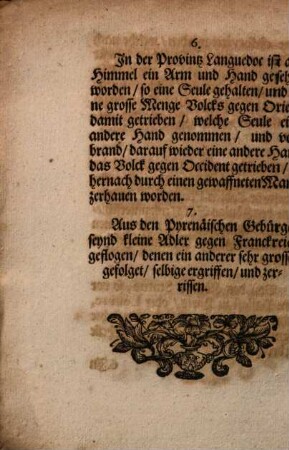 6.
In der Provintz Languedoc ist
Himmel ein Arm und Hand geseh
worden/ so eine Seule gehalten/ und
ne grosse Menge Volcks gegen Orie
damit getrieben/ welche Seule ei
andere Hand genommen/ und ve
brand/ darauf wieder eine andere Han
das Volck gegen Occident getrieben/
hernach durch einen gewaffneten Man
zerhauen worden.
7.
Aus den Pyrenäischen Gebürge
seynd kleine Adler gegen Franckreic
geflogen/ denen ein anderer sehr grosse
gefolget/ selbige ergriffen/ und zer-
rissen.